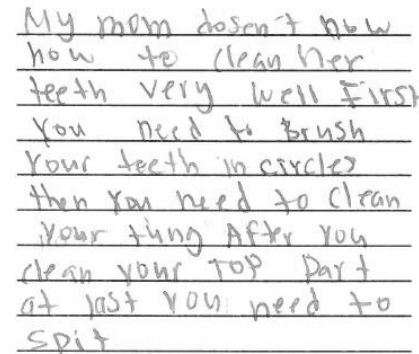 My mom dosen't now
how to clean her
teeth very well First
you need to Brush
Your teeth in circles
then you need to clean
your tung After you
clean your Top Part
at last you need to
spit